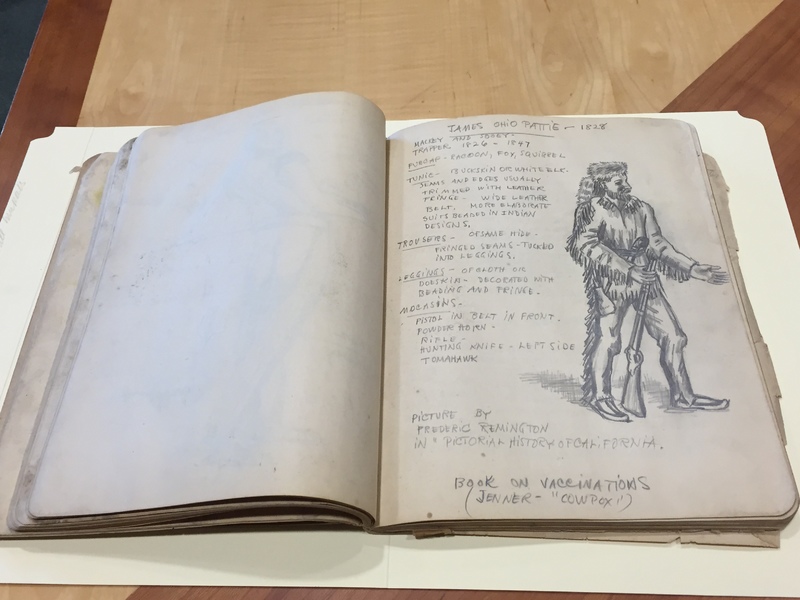 JAMES OHIO PATTIE - 1828
TRAPPER 1826 - 1847
FURCAP - RACOON, FOX, SQUIRREL
TUNIC - BUCKSKIN OR WHITE ELK.
SEAMS AND EDGES USUALLY
TRIMMED WITH LEATHER
FRINGE - WIDE LEATHER
BELT. MORE ELABORATE
SUITS BEADED IN INDIAN
DESIGNS.
TROUSERS - OF SAME HIDE -
FRINGED SEAMS - TUCKED
INTO LEGGINGS.
LEGGINGS - OF CLOTH OR
DOESKIN - DECORATED WITH
BEADING AND FRINGE.
MOCASINS -
PISTOL IN BELT IN FRONT.
POWDER HORN -
RIFLE -
HUNTING KNIFE - LEFT SIDE
TOMAHAWK
PICTURE BY
FREDERIC REMINGTON
IN "PICTORIAL HISTORY OF CALIFORNIA.
BOOK ON VACCINATIONS
(JENNER - "COWPOX")